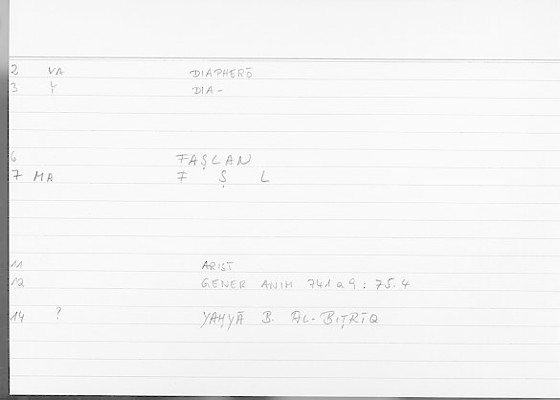 2 VA DIAPHERŌ
3 Y DIA-
6 FAṢLAN
7 MA F Ṣ L
11 ARIST
12 GENER ANIM 741a9: 75.4
14 ? YAḤYĀ B. AL-BIṬRĪQ